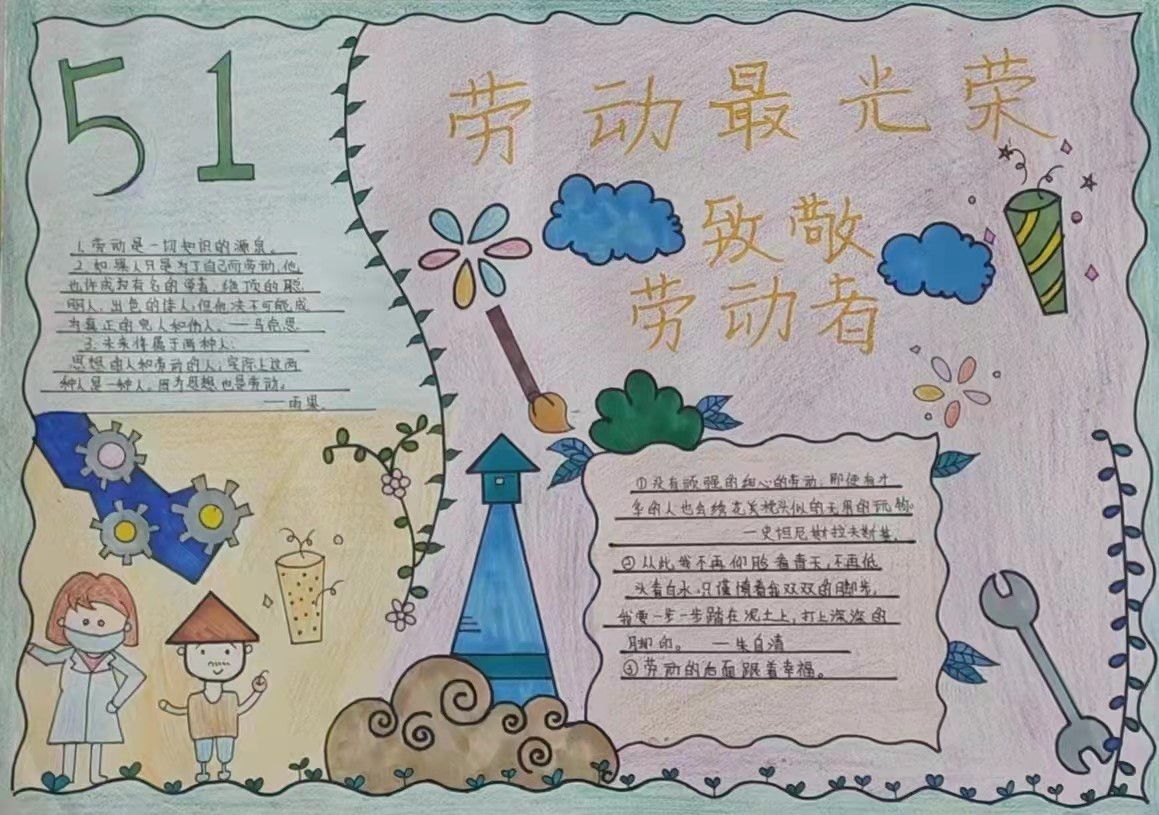 51
1. 劳动是一切知识的源泉。
2. 如果人只是为了自己而劳动,他
也许成为有名的学者、绝顶的聪
明人、出色的诗人,但他决不可能成
为真正的完人和伟人。——马克思
3. 未来将属于两种人:
思想的人和劳动的人,实际上这两
种人是一种人,因为思想也是劳动。
——雨果。
劳动最光荣
致敬
劳动者
①没有顽强的细心的劳动,即使有才
华的人也会绣花枕头似的无用的玩物
——史坦尼斯拉夫斯基。
②从此我不再仰脸看青天,不再低
头看白水,只谨慎着我双双的脚步,
我要一步一步踏在泥土上,打上深深的
脚印。 ——朱自清
③劳动的后面跟着幸福。